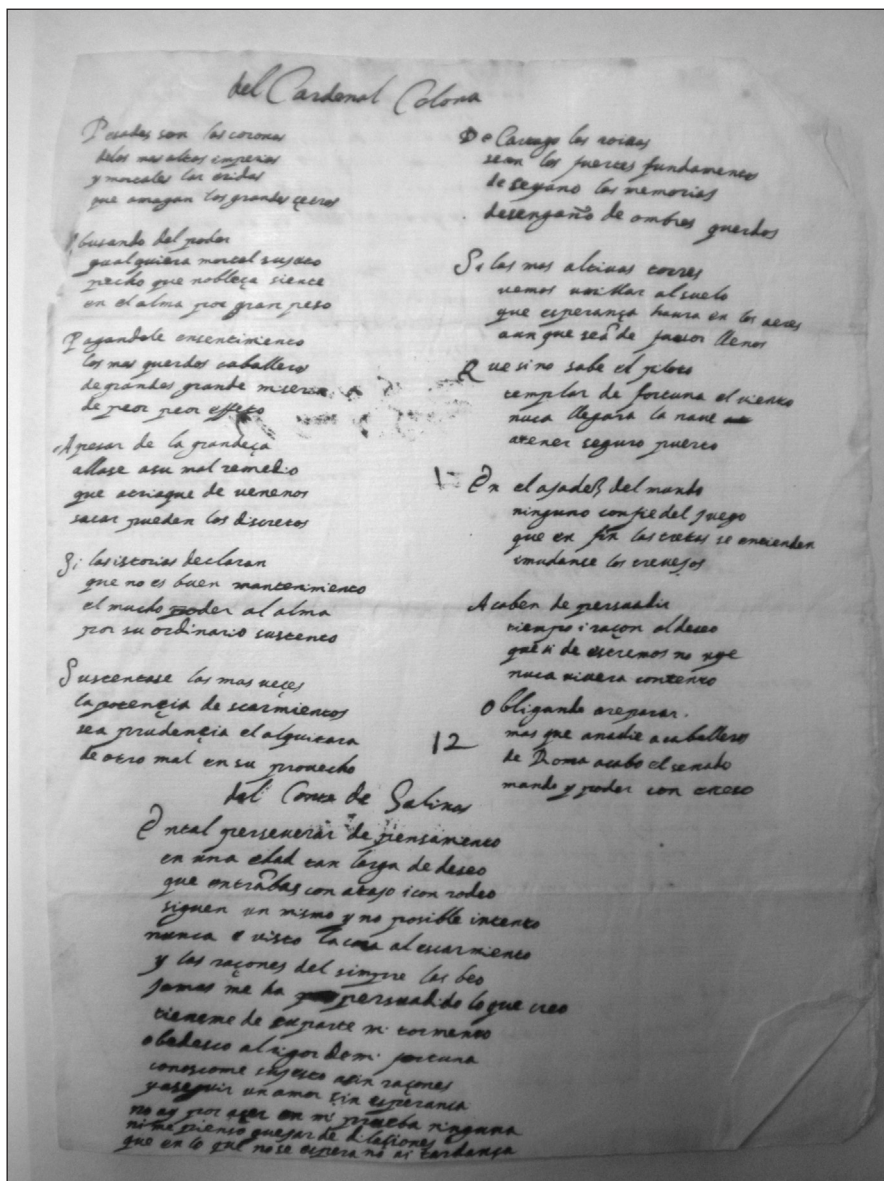 del Cardenal Colona
Pesadas son las coronas
delos mas altos imperios
y mortales las
que amagan los grandes çetros
Abusando del poder
qualquiera mortal sujeto
pecho que nobleça siente
en el alma por gran peso
Pagandole ensentimiento
los mas querdos caballeros
de grandes grande miseria
de peor peor effeto
Apesar de la grandeça
allase asu mal remedio
que atriaque de uenenos
sacar pueden los discretos
Si las istorias declaran
que no es buen mantenimiento
el mucho poder al alma
por su ordinario sustento
Sustentase las mas ueçes
la potençia de scarmientos
sea prudençia el alquitara
de otro mal en su prouecho
De Cartago las roinas
sean los fuertes fundamentos
de seyano las memorias
desengaño de ombres querdos
Si las mas altiuas torres
uemos umillar al suelo
que esperança haura en los
aun que sea de fauor llenos
Que si no sabe el piloto
templar de fortuna el uiento
nuca llegara la naue
atener seguro puerto
11
En el ajadrez del mando
ninguno confie del juego
que en fin las tretas se entienden
imudanse los
Acaben de persuadir
tiempo i raçon al deseo
que si de estremos no uye
nuca uiuera contento
12
Obligando areparar
mas que anadie acaballero
de Roma acabo el senado
mando y poder con creso
del Conte de Salinas
En tal perseuerar de pensamento
en una edad tan larga de deseo
que entrãbas con atajo icon rodeo
siguen un mismo y no posible intento
nunca e uisto la cara al escarmiento
y las raçones del simpre las beo
jamas me ha persuadido lo que creo
tieneme de suparte mi tormento
obedesco al rigor demi fortuna
conoscome sujeto asin raçones
y aseguir un amor sin esperança
no ay por açer en mi prueba ninguna
ni me pienso quejar de dilasiones
que en lo que nose espera no ai tardança